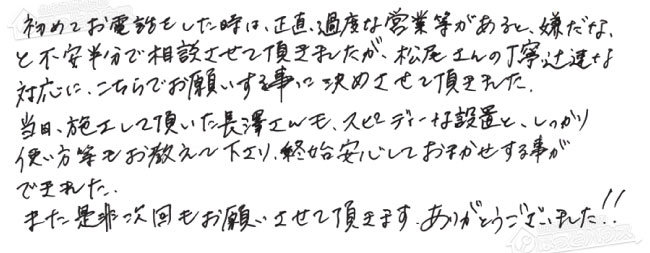 初めてお電話をした時は、正直、過度な営業等があると、嫌だな、
と不安半分で相談させて頂きましたが、松尾さんの丁寧、迅速な
対応に、こちらでお願いする事に決めさせて頂きました。
当日、施工して頂いた長澤さんも、スピーディーな設置と、しっかり
使い方等もお教えて下さり、終始安心しておまかせする事が
できました。
また是非次回もお願いさせて頂きます。ありがとうございました!!